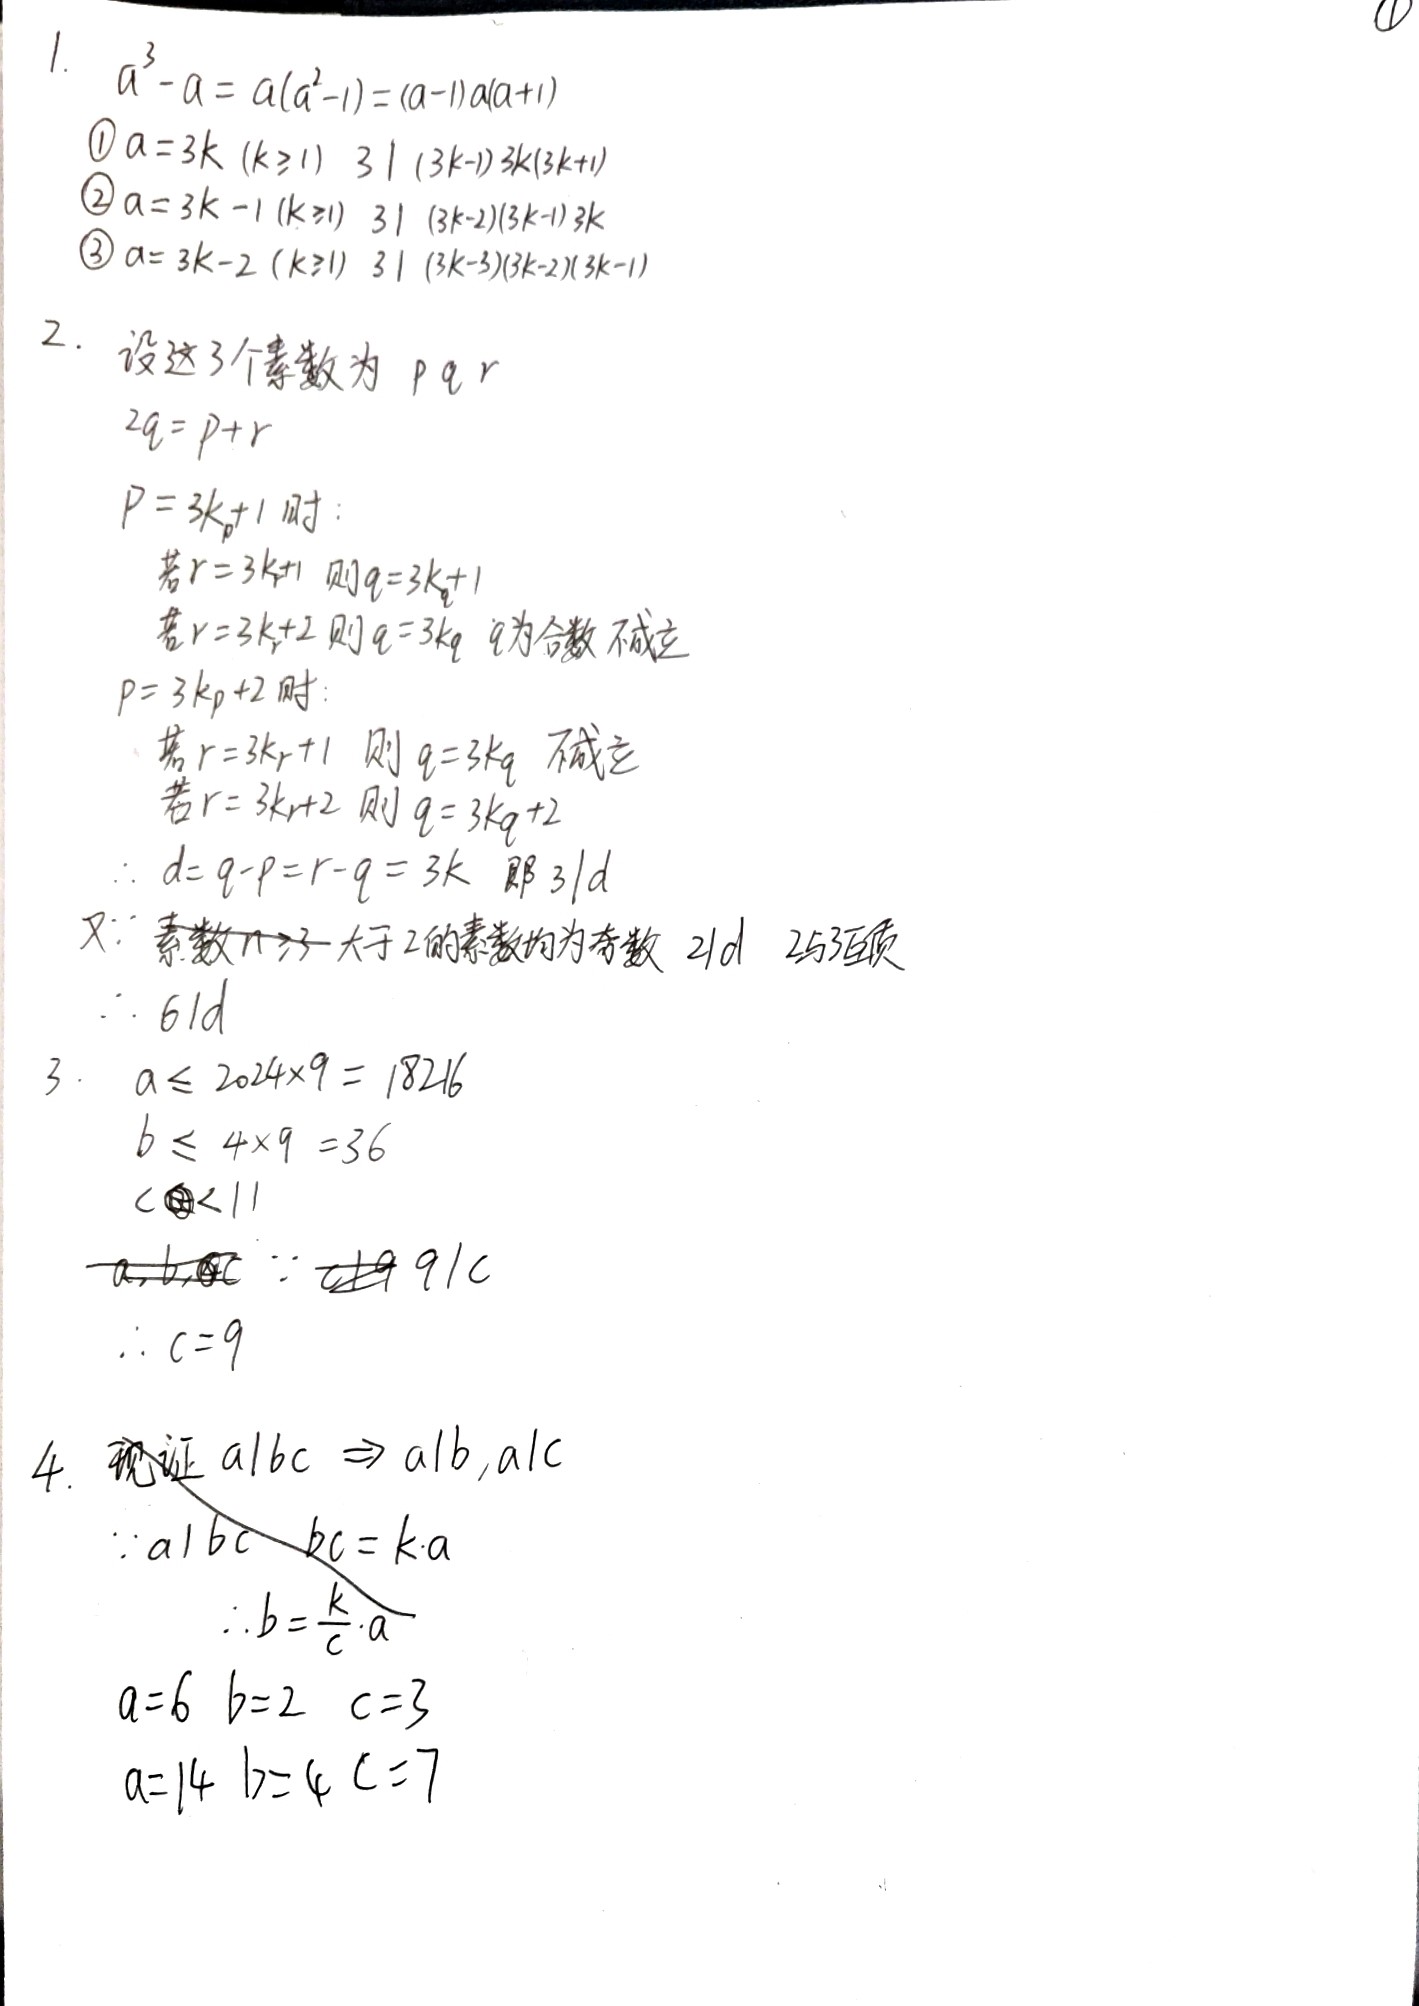 ①
1. a³-a=a(a²-1)=(a-1)a(a+1)
① a=3k (k≥1) 3 | (3k-1)3k(3k+1)
② a=3k-1 (k≥1) 3 | (3k-2)(3k-1)3k
③ a=3k-2 (k≥1) 3 | (3k-3)(3k-2)(3k-1)
2. 设这3个素数为 p q r
2q=p+r
P=3kₚ+1 时:
若r=3kᵣ+1 则q=3k_q+1
若r=3kᵣ+2 则q=3k_q q为合数 不成立
p=3kₚ+2 时:
若r=3kᵣ+1 则 q=3k_q 不成立
若r=3kᵣ+2 则 q=3k_q+2
∴ d=q-p=r-q=3k 即 3|d
又∵ 素数n≥3 大于2的素数均为奇数 2|d 2与3互质
∴ 6|d
3. a≤2024×9=18216
b≤4×9=36
c<11
a,b,c ∵ c|9 9|c
∴ c=9
4. 现证 a|bc ⇒ a|b,a|c
∵a|bc bc=k·a
∴b=k/c·a
a=6 b=2 c=3
a=14 b=4 c=7